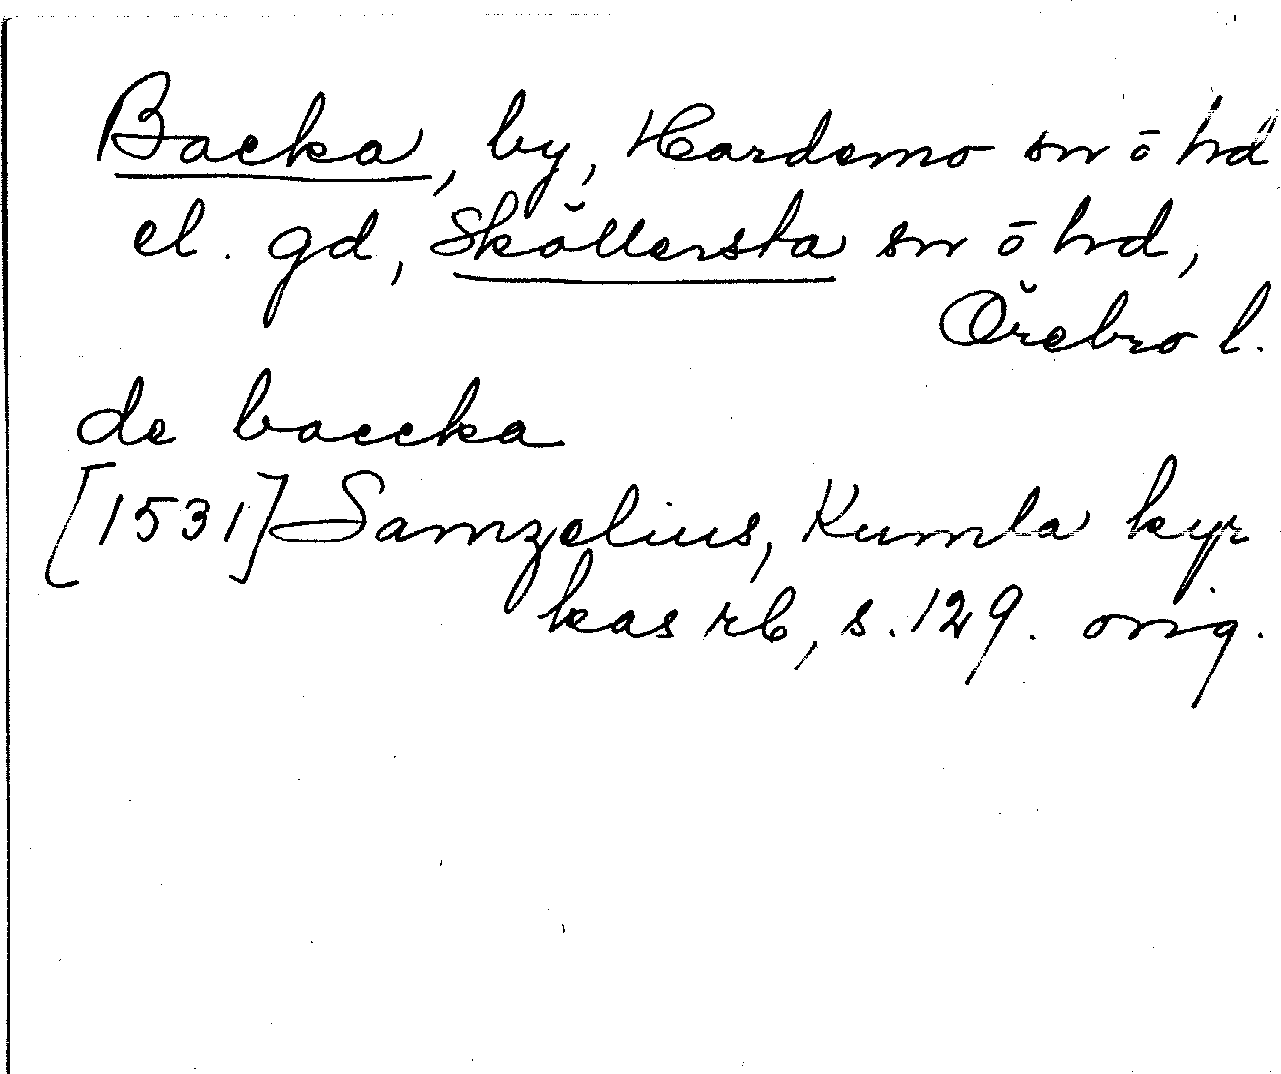 Backa, by, Hardemo sn ō hd
el. gd, Sköllersta sn ō hd,
Örebro l.
de baccka
[1531] Samzelius, Kumla kyr
kas rb, s. 129. orig.